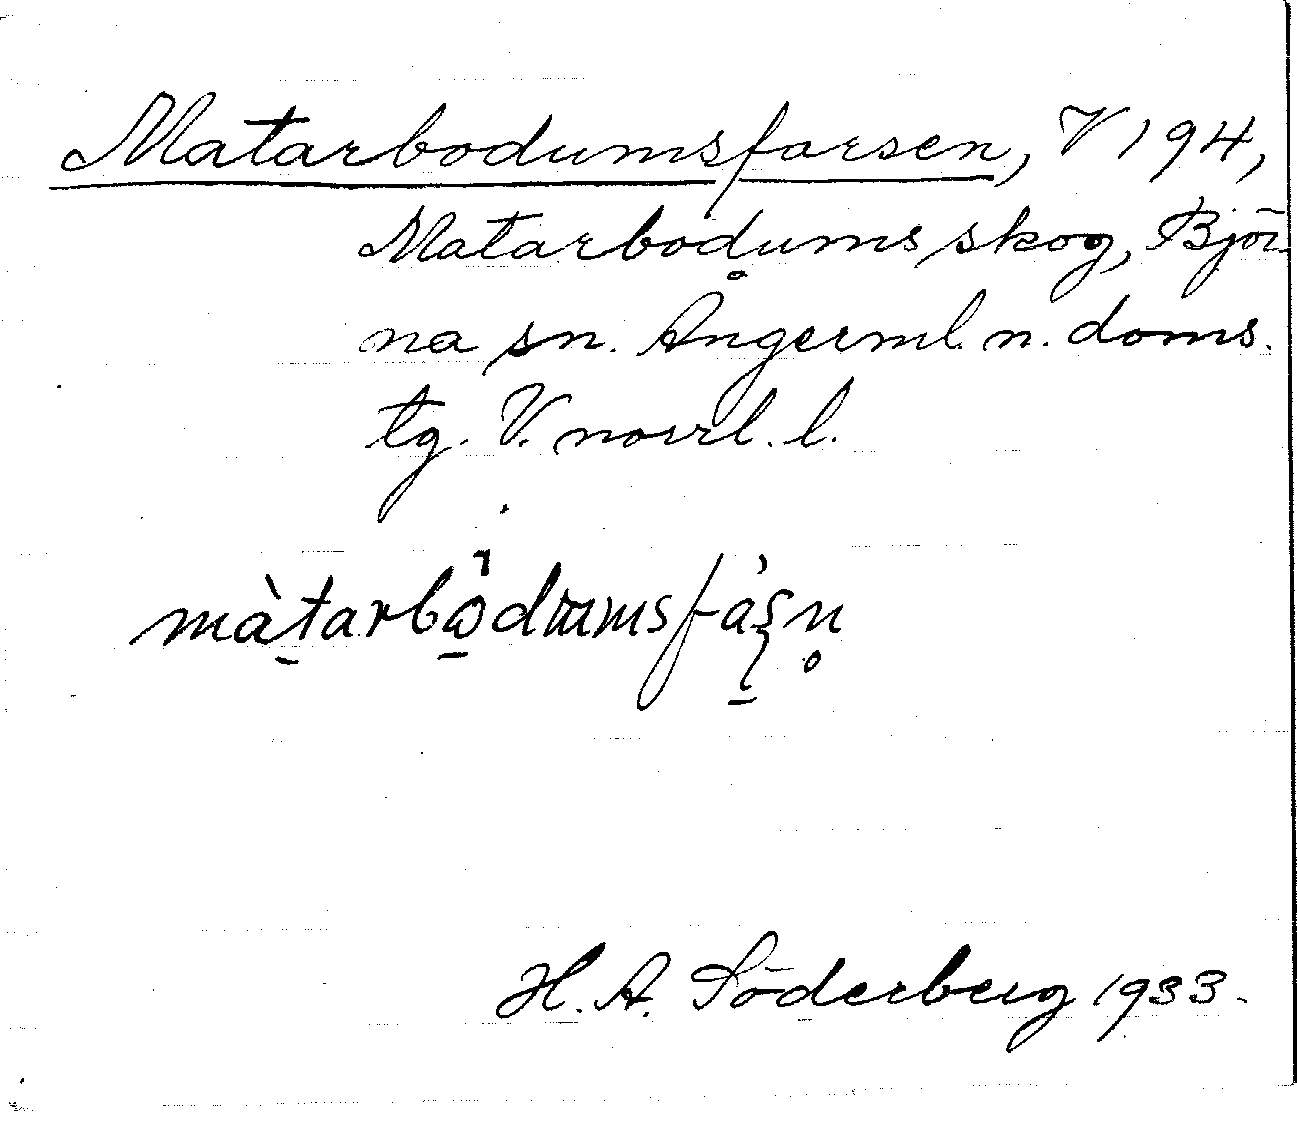 Matarbodumsfarsen, V 194,
Matarbodums skog, Björ-
na sn. Ångerml. n. doms.
tg. V. norrl. l.
H. A. Söderberg 1933.